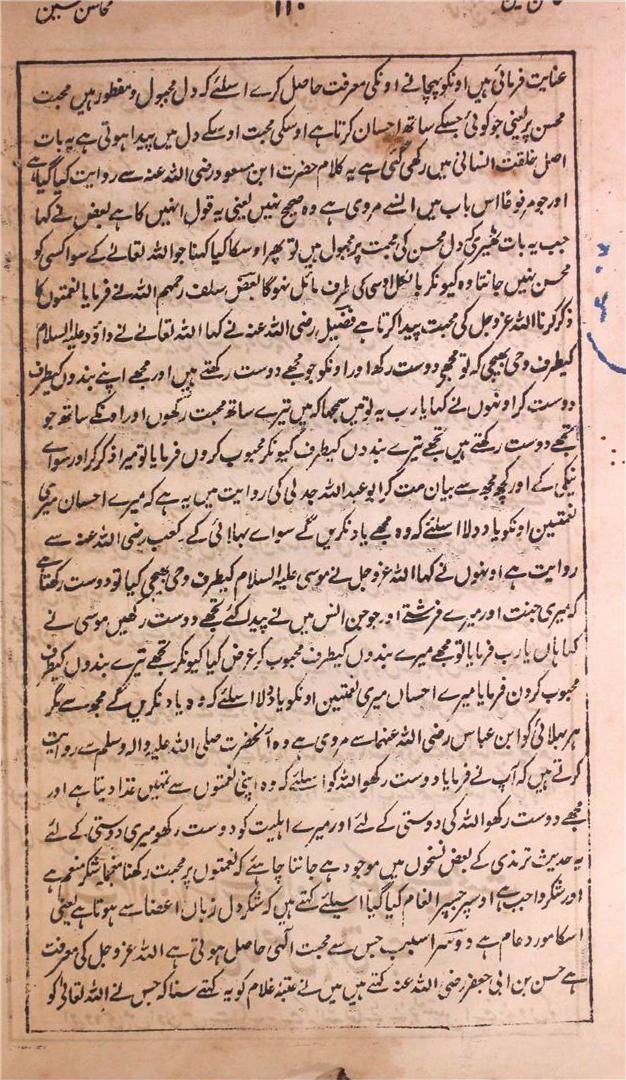 محاسن حسین
۱۱۰
عنایت فرمائی ہیں اونکو پہچانے اونکی معرفت حاصل کرے اسلئے کہ دل مجبول و مفطور ہیں محبت
محسن پر یعنی جو کوئی جسکے ساتھ احسان کرتا ہے اوسکی محبت اوسکے دل میں پیدا ہوتی ہے یہ بات
اصل خلقت انسانی میں رکھی گئی ہے یہ کلام حضرت ابن مسعود رضی اللہ عنہ سے روایت کیا گیا ہے
اور جو مرفوعًا اس باب میں انسے مروی ہے وہ صحیح نہیں یعنی یہ قول انہیں کا ہے بعض نے کہا
جب یہ بات ٹھیری کہ دل محسن کی محبت پر مجبول ہیں تو پھر اوسکا کیا کہنا جو اللہ تعالے کے سوا کسی کو
محسن نہیں جانتا وہ کیونکر بالکل اوسی کی طرف مائل نہوگا بعض سلف رحمہم اللہ نے فرمایا نعمتوں کا
ذکر کرنا اللہ عزوجل کی محبت پیدا کرتا ہے فضیل رضی اللہ عنہ نے کہا اللہ تعالے نے داؤد علیہ السلام
کیطرف وحی بھیجی کہ تو مجھے دوست رکھ اور اونکو جو مجھے دوست رکھتے ہیں اور مجھے اپنے بندوں کیطرف
دوست کر اونہوں نے کہا یا رب یہ تو میں سمجھا کہ میں تیرے ساتھ محبت رکھوں اور اونکے ساتھ جو
تجھے دوست رکھتے ہیں تجھے تیرے بندوں کیطرف کیونکر محبوب کروں فرمایا تو میرا ذکر کر اور سواے
نیکی کے اور کچھ مجھ سے بیان مت کر ابو عبد اللہ جدلی کی روایت میں یہ ہے کہ میرے احسان میری
نعمتیں اونکو یاد دلا اسلئے کہ وہ مجھے یاد نکریں گے سواے بہلائی کے۔ کعب رضی اللہ عنہ سے
روایت ہے اونہوں نے کہا اللہ عزوجل نے موسی علیہ السلام کیطرف وحی بھیجی کیا تو دوست رکھتا ہے
کہ میری جنت اور میرے فرشتے اور جو جن انس میں نے پیدا کئے تجھے دوست رکھیں موسی نے
کہا ہاں یا رب فرمایا تو مجھے میرے بندوں کیطرف محبوب کر عرض کیا کیونکر تجھے تیرے بندوں کیطرف
محبوب کرون فرمایا میرے احساں میری نعمتیں اونکو یاد دلا اسلئے کہ وہ یاد نکریں گے مجھ سے مگر
ہر بہلائی کو ابن عباس رضی اللہ عنہما سے مروی ہے وہ آنحضرت صلی اللہ علیہ والہ وسلم سے روایت
کرتے ہیں کہ آپ نے فرمایا دوست رکھو اللہ کو اسلئے کہ وہ اپنی نعمتوں سے تمہیں غذا دیتا ہے اور
مجھے دوست رکھو اللہ کی دوستی کے لئے اور میرے اہلبیت کو دوست رکھو میری دوستی کے لئے
یہ حدیث ترمذی کے بعض نسخوں میں موجود ہے جاننا چاہئے کہ نعمتوں پر محبت رکھنا منجملہ شکر منعم ہے
اور شکر واجب ہے اوسپر جسپر انعام کیا گیا اسلئے کہتے ہیں کہ شکر دل زباں اعضا سے ہوتا ہے یعنی
اسکا مورد عام ہے دوسرا سبب جس سے محبت الٰہی حاصل ہوتی ہے اللہ عزوجل کی معرفت
ہے حسن بن ابی جعفر رضی اللہ عنہ کہتے ہیں میں نے عتبۃ غلام کو یہ کہتے سنا کہ جس نے اللہ تعالیٰ کو